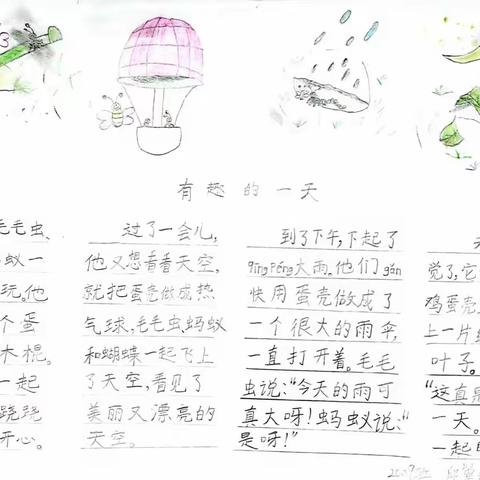 有趣的一天
毛毛虫、
蚂蚁一
玩。他
个蛋
木棍。
一起
跷跷
开心。
过了一会儿,
他又想看看天空,
就把蛋壳做成热
气球,毛毛虫蚂蚁
和蝴蝶一起飞上
了天空,看见了
美丽又漂亮的
天空。
到了下午,下起了
qīng pén大雨。他们gǎn
快用蛋壳做成了
一个很大的雨伞,
一直打开着。毛毛
虫说:“今天的雨可
真大呀!蚂蚁说:“
是呀!”
觉了,它
鸡蛋壳
上一片
叶子。
“这真是
一天。
一起